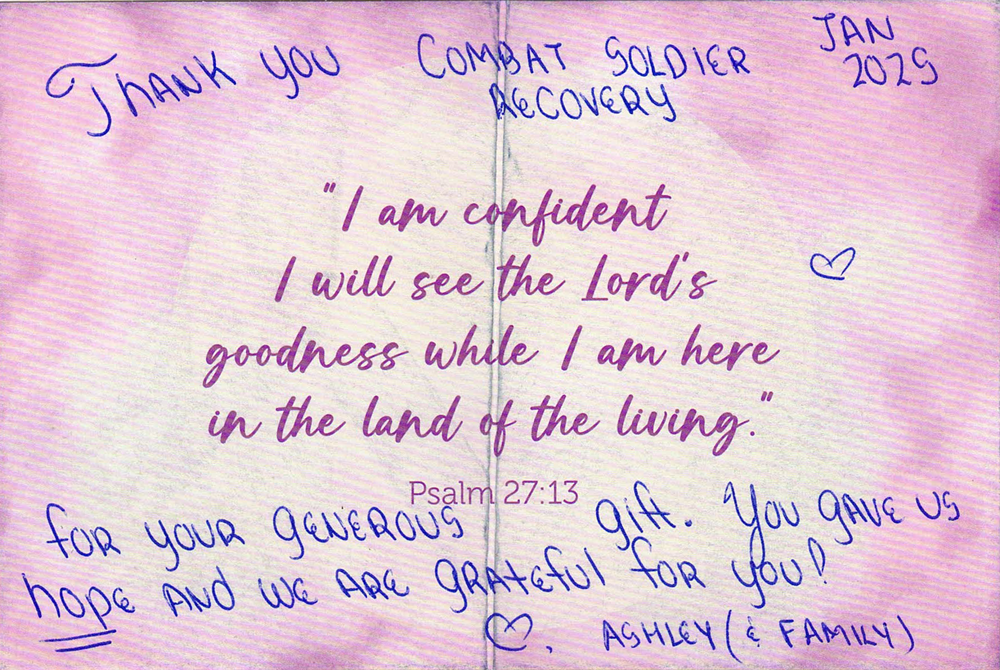 Thank you COMBAT SOLDIER JAN
RECOVERY 2025
"I am confident
I will see the Lord's
goodness while I am here
in the land of the living."
Psalm 27:13
for your generous gift. You gave us
hope and we are grateful for you!
♡. ASHLEY (& FAMILY)